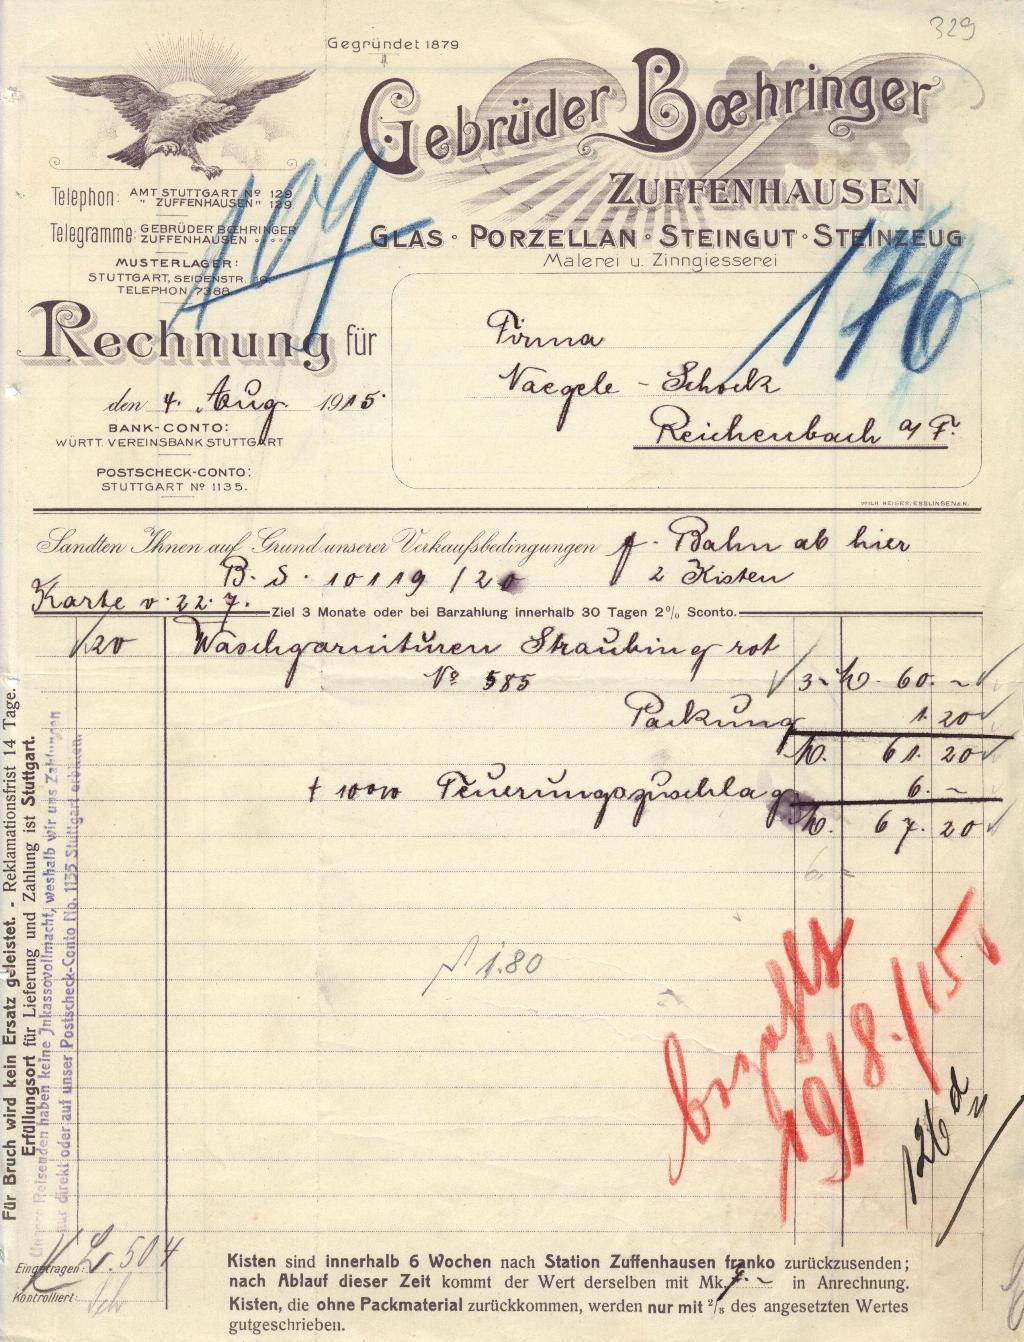 329
Gegründet 1879
Gebrüder Bœhringer
ZUFFENHAUSEN
GLAS · PORZELLAN · STEINGUT · STEINZEUG
Malerei u. Zinngiesserei
Telephon: AMT STUTTGART Nº 129
" ZUFFENHAUSEN " 129
Telegramme: GEBRÜDER BŒHRINGER
ZUFFENHAUSEN
MUSTERLAGER:
STUTTGART, SEIDENSTR.
TELEPHON 7388
109
176
Rechnung für
Firma
Naegele - Schock
Reichenbach a/F.
den 4. Aug. 1915.
BANK-CONTO:
WÜRTT. VEREINSBANK STUTTGART
POSTSCHECK-CONTO:
STUTTGART Nº 1135.
WILH. HEIGER, ESSLINGEN a.N.
Sandten Ihnen auf Grund unserer Verkaufsbedingungen p. Bahn ab hier
B. S. 10119/20 2 Kisten
Karte v. 22. 7. Ziel 3 Monate oder bei Barzahlung innerhalb 30 Tagen 2% Sconto.
20 Waschgarnituren Straubing rot
Nº 585 3.- M. 60. -
Packung 1. 20
M. 61. 20
+ 10% Teuerungszuschlag 6. -
M. 67. 20
6 -
1.80
bezahlt
19/8./15.
126
Für Bruch wird kein Ersatz geleistet. - Reklamationsfrist 14 Tage.
Erfüllungsort für Lieferung und Zahlung ist Stuttgart.
Unsere Reisenden haben keine Inkassovollmacht, weshalb wir uns Zahlungen
nur direkt oder auf unser Postscheck-Conto No. 1135 Stuttgart erbitten.
Eingetragen: L. 504
Kontrolliert:
Kisten sind innerhalb 6 Wochen nach Station Zuffenhausen franko zurückzusenden;
nach Ablauf dieser Zeit kommt der Wert derselben mit Mk. 9. - in Anrechnung.
Kisten, die ohne Packmaterial zurückkommen, werden nur mit 2/3 des angesetzten Wertes
gutgeschrieben.